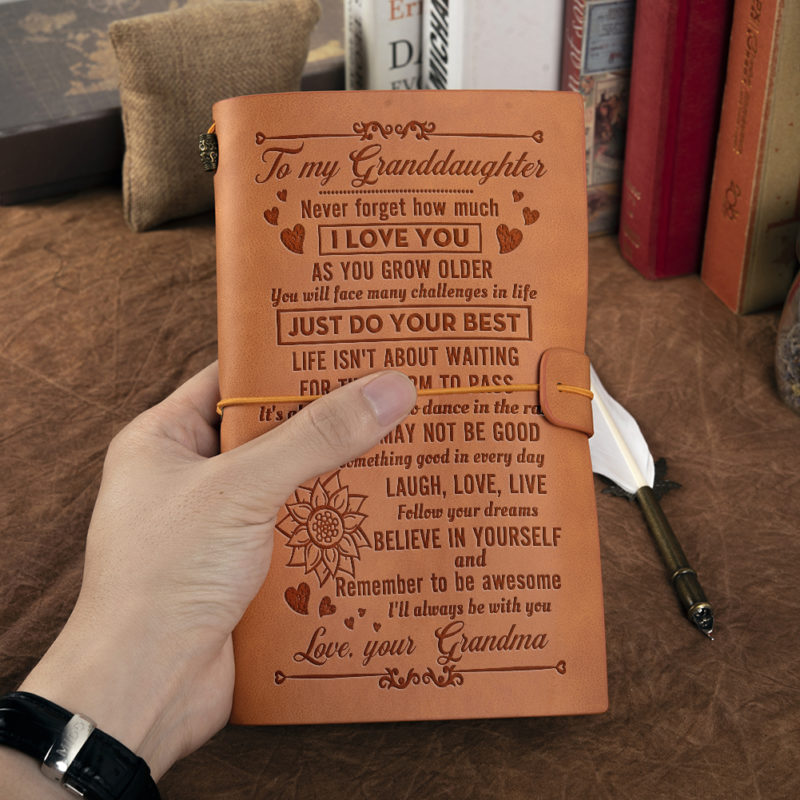 To my Granddaughter
Never forget how much
I LOVE YOU
AS YOU GROW OLDER
You will face many challenges in life
JUST DO YOUR BEST
LIFE ISN'T ABOUT WAITING
FOR TO PASS
It's to dance in the
MAY NOT BE GOOD
something good in every day
LAUGH, LOVE, LIVE
Follow your dreams
BELIEVE IN YOURSELF
and
Remember to be awesome
I'll always be with you
Love, your Grandma